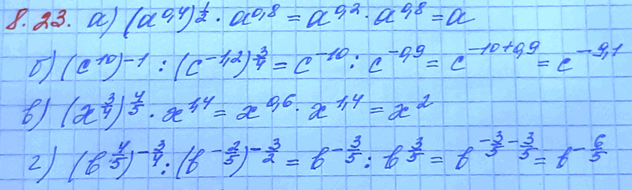 8.23. а) (a^0,4)^1/2 · a^0,8 = a^0,2 · a^0,8 = a
б) (c^10)^-1 : (c^-1,2)^3/4 = c^-10 : c^-0,9 = c^-10+0,9 = c^-9,1
в) (x^3/4)^4/5 · x^1,4 = x^0,6 · x^1,4 = x^2
г) (b^4/5)^-3/4 : (b^-2/5)^-3/2 = b^-3/5 : b^3/5 = b^-3/5-3/5 = b^-6/5